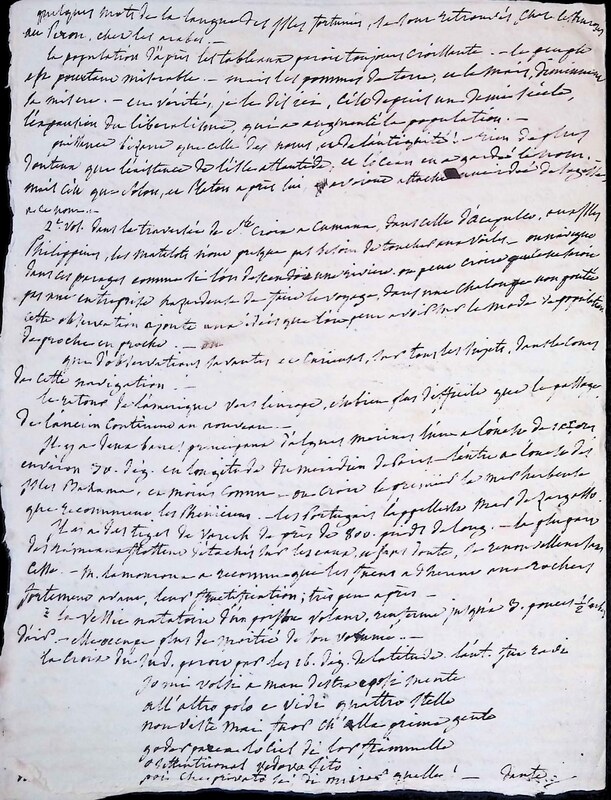 quelques mots de la langue des isles fortunées, se sont retrouvés, chez
au Peron, chez les arabes. -
la population d'après les tableaux paroit toujours croissante. - le peuple
est pourtant misérable. - mais les pommes de terre, et le maïs, diminuent
la misère. - en vérité, je le dis ici, c'est depuis un demi siècle,
l'expansion du liberalisme, qui a augmenté la population. -
bizarre que celle des noms, et de l'antiquité! - rien de plus
douteux que l'existence de l'isle atlantide, et l'océan en a gardé le nom. -
mais celle que Solon, et Platon après lui, avoient attaché une idée de
a ce nom. -
2e. vol. dans la traversée de Ste. Croix a Cumana, dans celle d'acapulco, aux isles
Philippines, les matelots n'ont presque pas besoin de toucher aux voiles - on navigue
dans ces parages comme si l'on descendoit une rivière, on peut croire que ce ne seroit
pas une entreprise hasardeuse de faire le voyage, dans une chaloupe non pontée
cette observation ajoute aux idées que l'on peut avoir sur le mode de population
de proche en proche. -
que d'observations savantes et curieuses, sur tous les sujets, dans le cours
de cette navigation. -
le retour de l'amérique vers l'europe, est bien plus difficile que le passage
de l'ancien continent au nouveau. -
Il y a deux bancs principaux d'algues marines l'un a l'ouest des açores
environ 30. deg. en longitude du meridien de Paris - l'autre a l'ouest des
isles Bahama, est moins connu - on croit le premier la mer herbeuse
que reconnurent les Phéniciens. - les Portugais l'appellent Mar de Zargasso
Il y a des tiges de varech de près de 800. pieds de long. - la plupart
flottent détachés sur les eaux, et sans doute, se renouvellent sans
cesse - M. Lamouroux a reconnu que les fucus adherent aux rochers
fortement avant, leur fructification; très peu après -
la vessie natatoire d'un poisson volant, renferme jusqu'à 3. pouces ½ cubes
d'air. - elle occupe plus de moitié de son volume. -
la Croix du Sud, paroit par les 16. deg. de latitude.
Jo mi volsi a man destra e posi mente
all'altro polo e vidi quattro stelle
non viste mai fuor ch'alla prima gente
goder parea lo ciel di lor fiammelle
o settentrional vedovo sito
poi che privato se' di mirar quelle! - Dante.